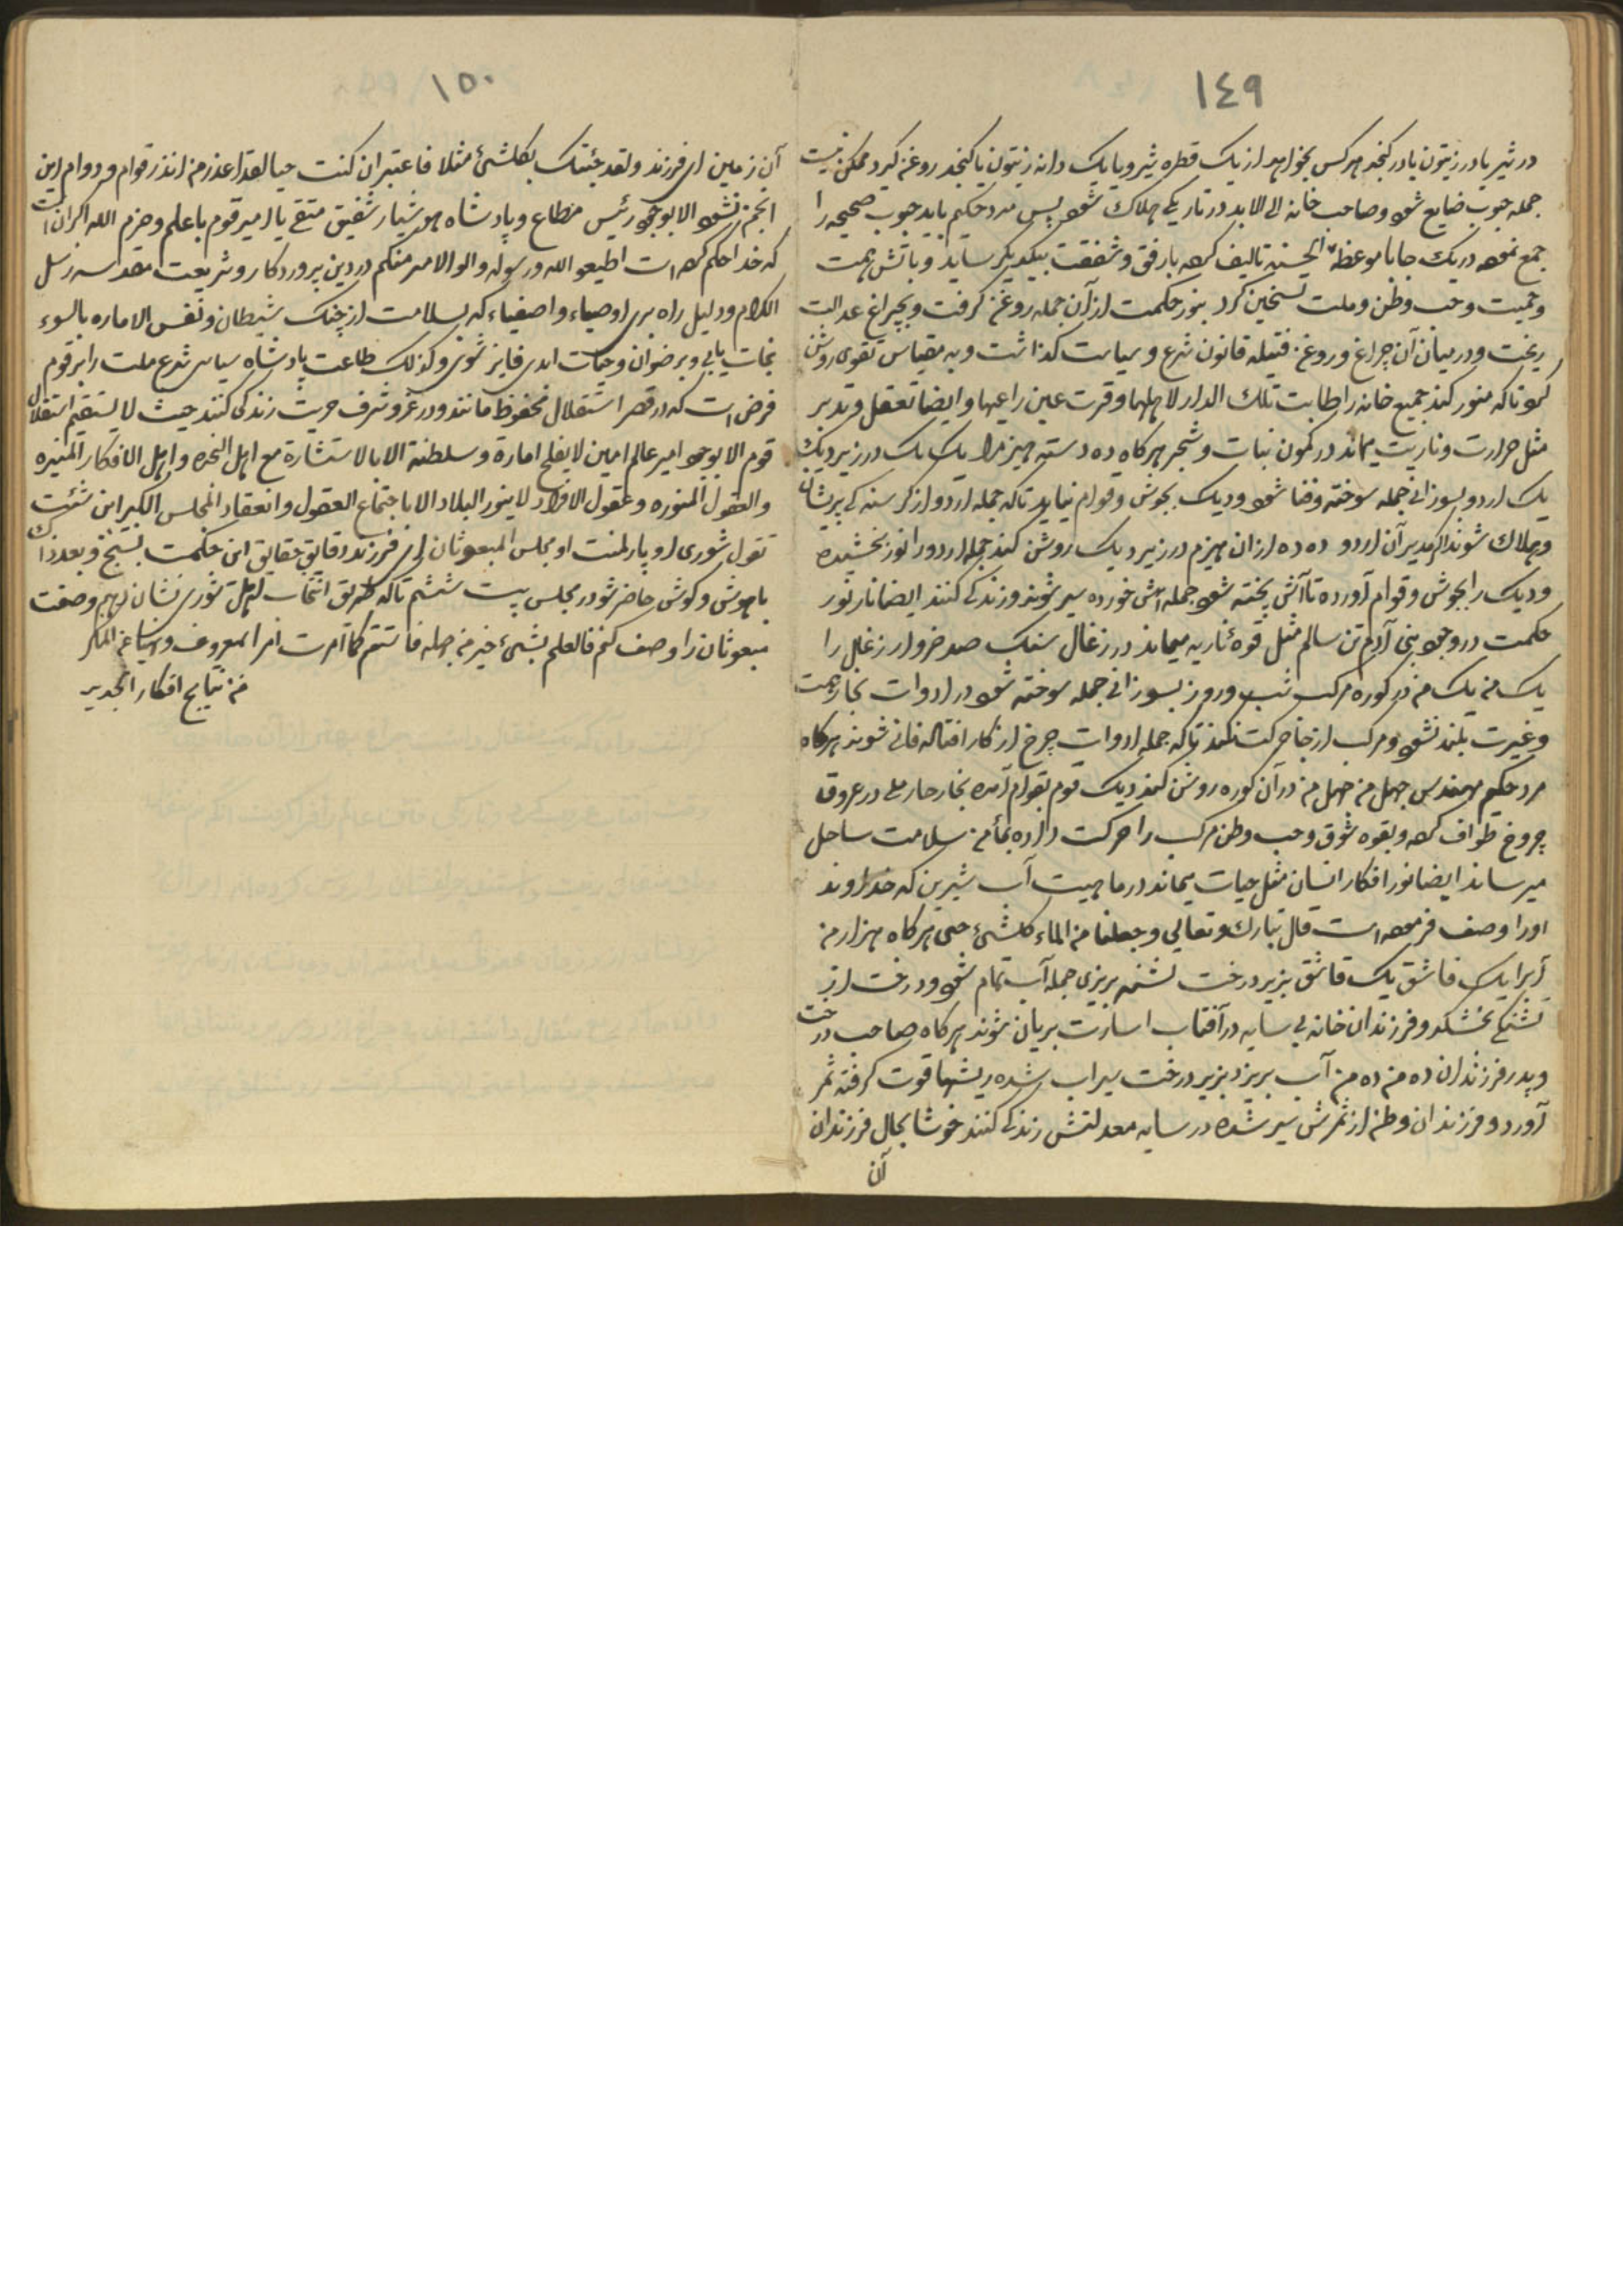 ١٤٩
در شیر یا در زیتون یا در کنجد هر کس بخواهد از یک قطره شیر و یا یک دانه زیتون یا کنجد روغن کیرد ممکن نیست
جمله حبوب ضایع شود و صاحب خانه لابد در تاریکی هلاک شود پس مرد حکیم باید حبوب صحیحه را
جمع نموده در یک جا با موعظة الحسنه تالیف کرده با رفق و شفقت بیکدیکر ساید و باتش همت
و حمیت و حب وطن و ملت تسخین کرد بنور حکمت از آن جمله روغن کرفت و بچراغ عدالت
ریخت و در میان آن چراغ و روغن فتیله قانون شرع و سیاست کذاشت و به مقیاس تقوی روشن
نمود تا که منور کند جمیع خانه را طابت تلک الدار لاهلها و قرت عین راعیها و ایضا تعقل و تدبر
مثل حرارت و ناریت میماند در کمون نبات و شجر هرکاه ده دسته هیزم را یک یک در زیر دیک
یک اردو بسوزانی جمله سوخته و فنا شود و دیک بجوش و قوام نیاید تا که جمله اردو از کرسنه کی پریشان
و هلاک شوند اکر مدیر آن اردو ده ده از آن هیزم در زیر دیک روشن کند جمله اردو را نور بخشیده
و دیک را بجوش و قوام آورده تا آش پخته شود جمله آش خورده سیر شوند و زندکی کنند ایضا نار نور
حکمت در وجود بنی آدم تن سالم مثل قوهٔ ناریه میماند در زغال سنک صد خروار زغال را
یک من یک من در کوره مرکب شب و روز بسوزانی جمله سوخته شود در ادوات بخار همت
و غیرت بلند نشود و مرکب از جا حرکت نکند تا که جمله ادوات چرخ از کار افتاده فانی شوند هرکاه
مرد حکیم مهندس چهل من چهل من در آن کوره روشن کند دیک قوم بقوام آمده بخار حار ملی در عروق
چروخ طواف کرده و بقوه شوق و حب وطن مرکب را حرکت داده بمأمن سلامت ساحل
میرساند ایضا نور افکار انسان مثل حیات میماند در ماهیت آب شیرین که خداوند
اورا وصف فرموده است قال تبارک و تعالی و جعلنا من الماء کلشئ حی هرکاه هزار من
آبرا یک قاشق یک قاشق بزیر درخت تشنه بریزی جمله آب تمام شود و درخت از
تشنکی بخشکد و فرزندان خانه بی سایه در آفتاب اسارت بریان شوند هرکاه صاحب درخت
و پدر فرزندان ده من ده من آب بریزد بزیر درخت سیراب شده ریشها قوت کرفته ثمر
آورد و فرزندان وطن از ثمرش سیر شده در سایه معدلتش زندکی کنند خوشا بحال فرزندان
آن
١٥٠
آن زمین ای فرزند و لقد جئتک بکلشئ مثلا فاعتبر ان کنت حیا لقد اعذر من انذر قوام و دوام این
انجمن نشود الا بوجود رئیس مطاع و پادشاه هوشیار شفیق متقی یا امیر قوم با علم و حزم الله اکبر آن است
که خدا حکم کرده است اطیعو الله و رسوله و الوالامر منکم در دین پروردکار و شریعت مقدسه رسل
الکرام و دلیل راه بری اوصیاء و اصفیاء که بسلامت از چنک شیطان و نفس الاماره بالسوء
نجات یابی و برضوان و حیات ابدی فایز شوی و کذلک طاعت پادشاه سیاسی شرع ملت را بر قوم
فرض است که در قصر استقلال محفوظ مانند و در عز و شرف حریت زندکی کنند حیث لا یستقیم استقلال
قوم الا بوجود امیر عالم امین لا یفلح امارة و سلطنة الا بالاستشارة مع اهل الخبره و اهل الافکار المنیره
و العقول المنوره و عقول الافراد لا ینور البلاد الا باجتماع العقول و انعقاد المجلس الکبیر ان شئت
تقول شوری او پارلمنت او مجلس المبعوثان ای فرزند دقایق حقایق این حکمت بسنج و بعد ذلک
باهوش و کوش حاضر شو در مجلس بیست ششم تا که طریق انتخاب اهل شوری نشان دهم و صفت
مبعوثان را وصف کنم فالعلم بشئ خیر من جهله فاستقم کما امرت امرا لمعروف و ناهیا عن المنکر
من نتایج افکار الجدید